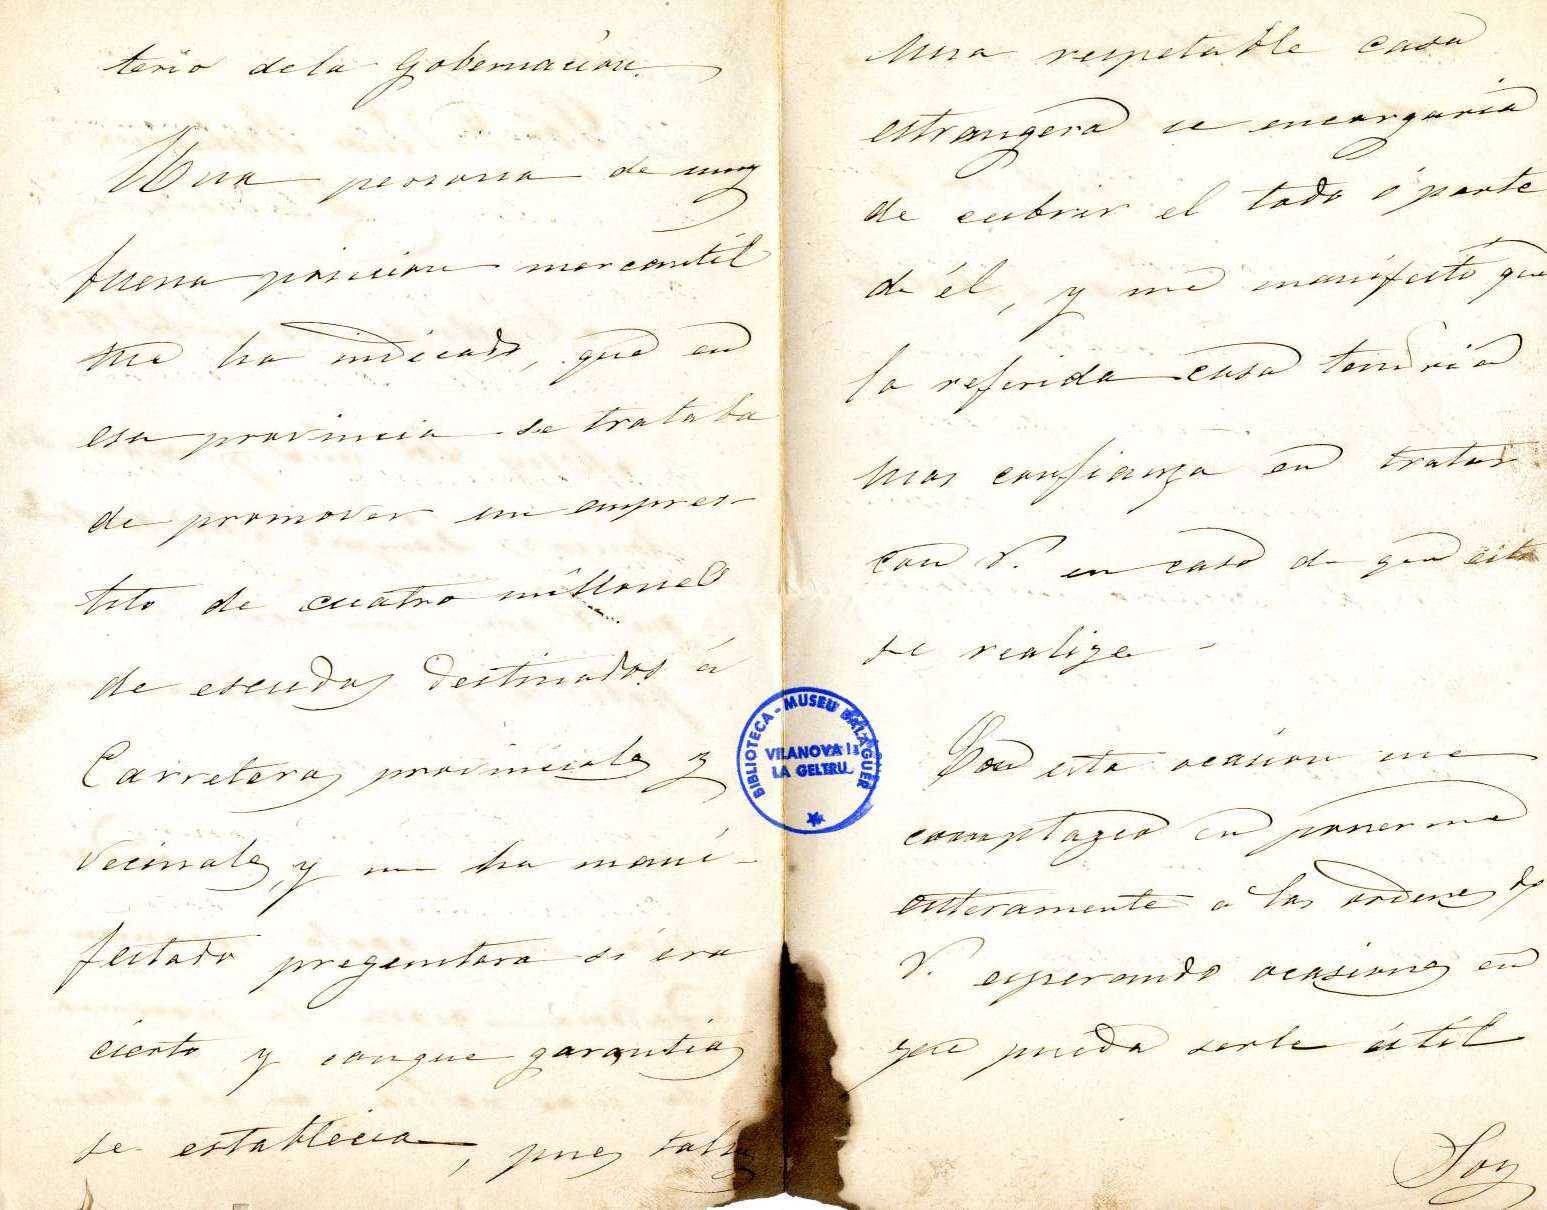 terio de la Gobernacion.
Una persona de muy
buena posicion mercantil
me ha indicado, que en
esa provincia se trataba
de promover un empres-
tito de cuatro millones
de escudos destinados á
Carreteras provinciales y
vecinales, y me ha mani-
festado preguntara si era
cierto y con que garantias
se establecia, pues tal
una respetable casa
estrangera se encargaria
de cubrir el todo ó parte
de él, y me manifestó que
la referida casa tendria
mas confianza en tratar
con V. en caso de que esto
se realize -
Con esta ocasion me
complazco en ponerme
enteramente a las ordenes de
V. esperando ocasiones en
que pueda serle útil
Soy
BIBLIOTECA - MUSEU BALAGUER
VILANOVA I
LA GELTRU